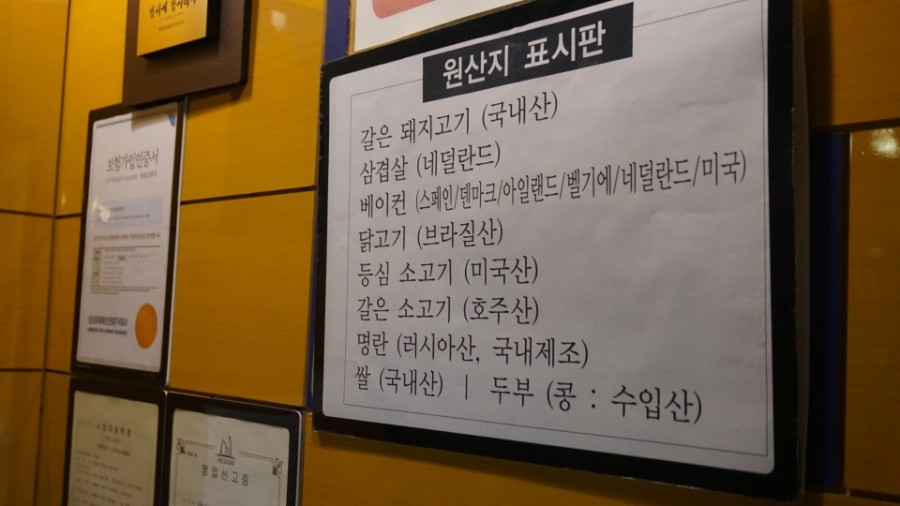 보험가입인증서
원산지 표시판
갈은 돼지고기 (국내산)
삼겹살 (네덜란드)
베이컨 (스페인/덴마크/아일랜드/벨기에/네덜란드/미국)
닭고기 (브라질산)
등심 소고기 (미국산)
갈은 소고기 (호주산)
명란 (러시아산, 국내제조)
쌀 (국내산) | 두부 (콩 : 수입산)
영업신고증